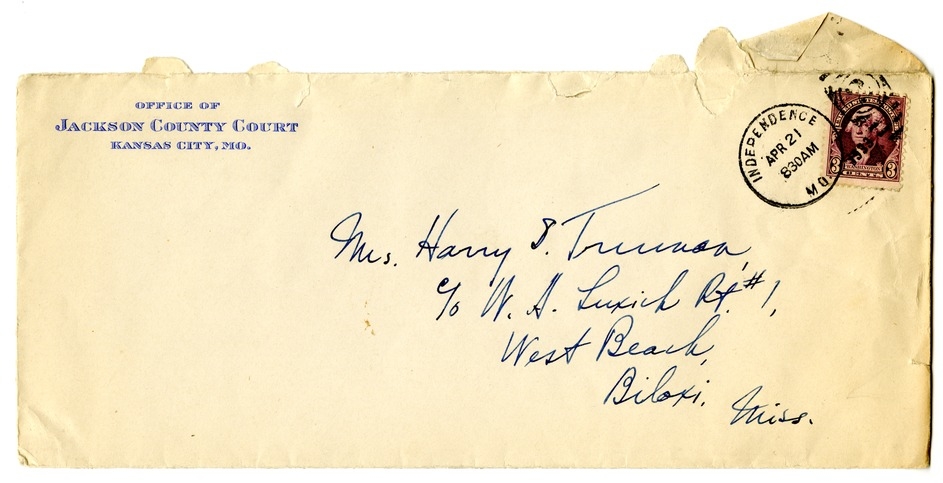 OFFICE OF
JACKSON COUNTY COURT
KANSAS CITY, MO.
INDEPENDENCE
APR 21
830AM
MO.
WASHINGTON
3 CENTS 3
Mrs. Harry S. Truman,
c/o W. H. Luxich Rt. #1,
West Beach,
Biloxi, Miss.